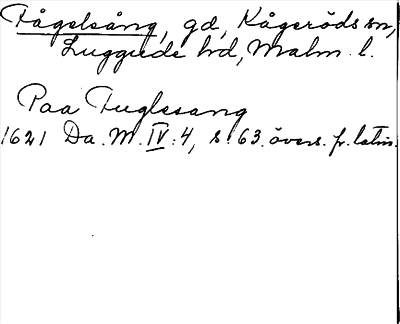 Fågelsång, gd, Kågeröds sn,
Luggude hd, Malm. l.
Paa Fuglesang
1621 Da. M. IV: 4, s. 63. övers. fr. latin.